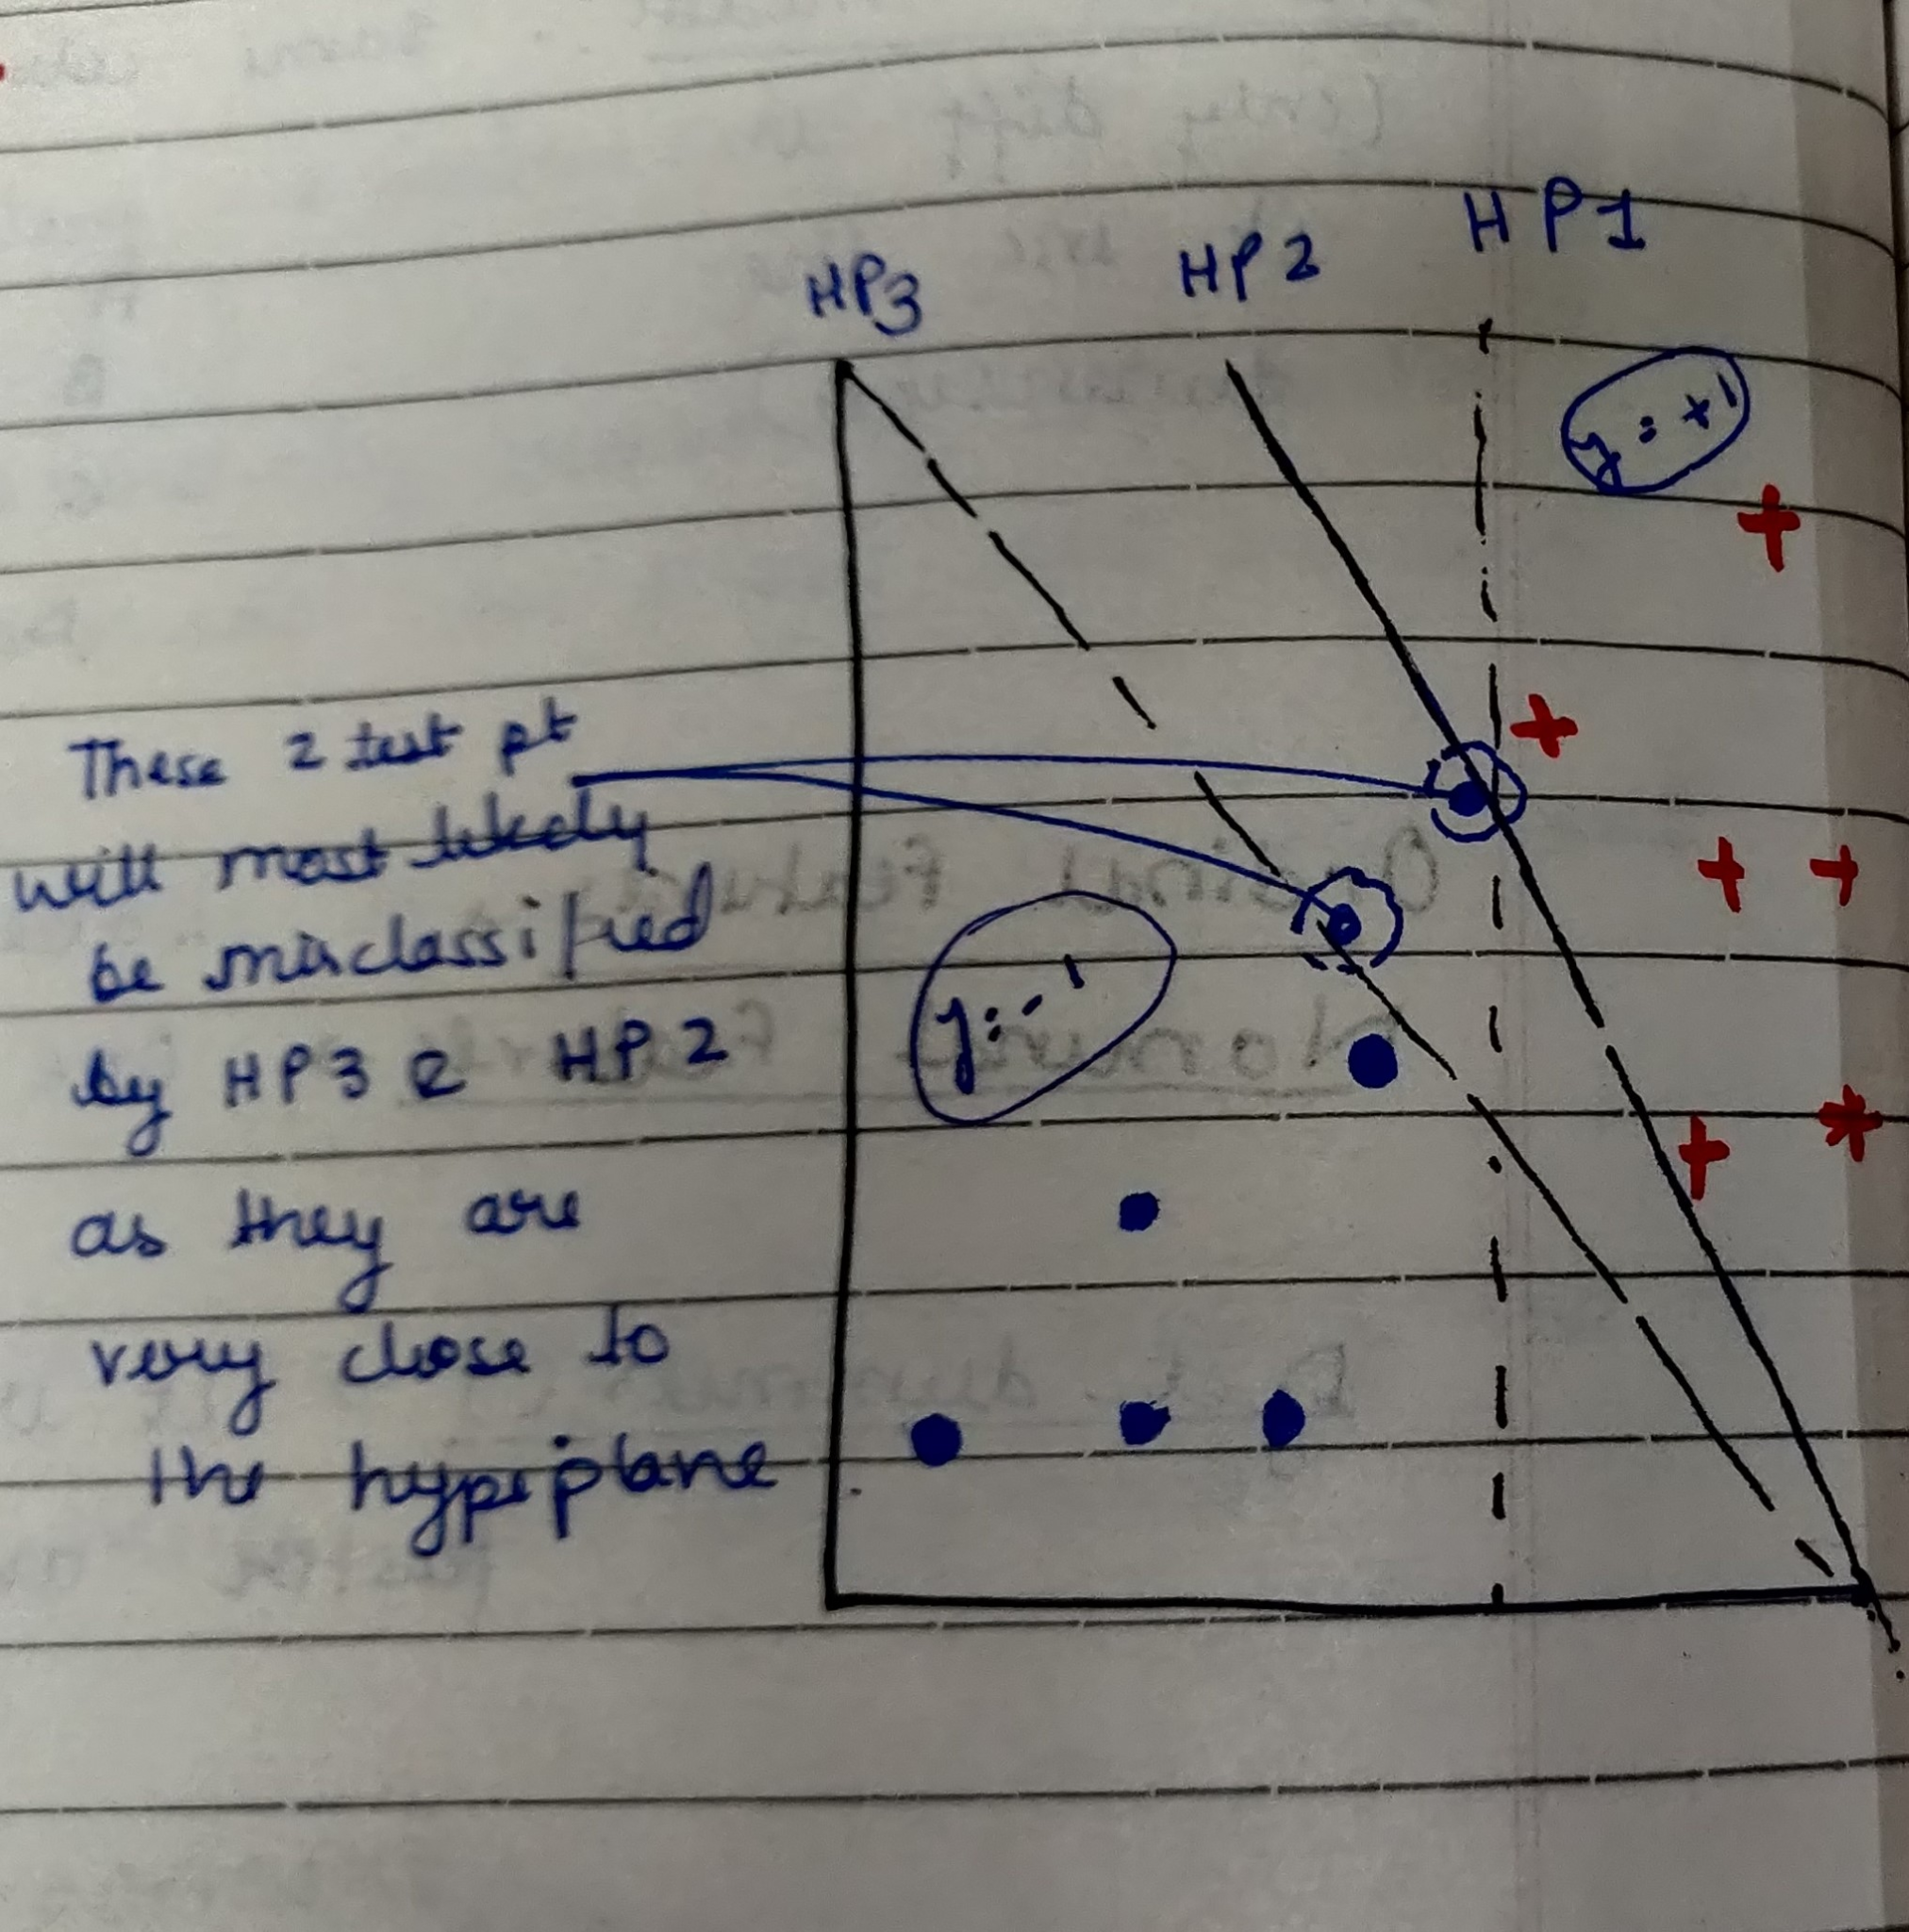 HP3 HP2 HP1
y = +1
These 2 test pt
will most likely
be misclassified
y = -1
by HP3 & HP2
as they are
very close to
the hyperplane